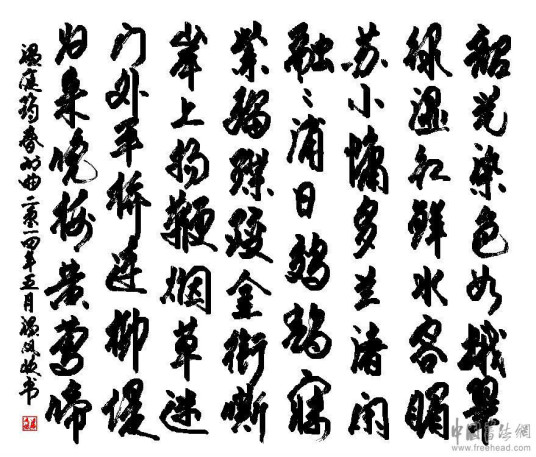 韶光染色如蛾翠
绿湿红鲜水容媚
苏小慵多兰渚闲
融〻浦日鵁鶄寐
紫骝蹀躞金衔嘶
岸上扬鞭烟草迷
门外平桥连柳堤
归来晓树黄莺啼
温庭筠春州曲二零一四年五月温凤书
中国书法網
www.freehead.com